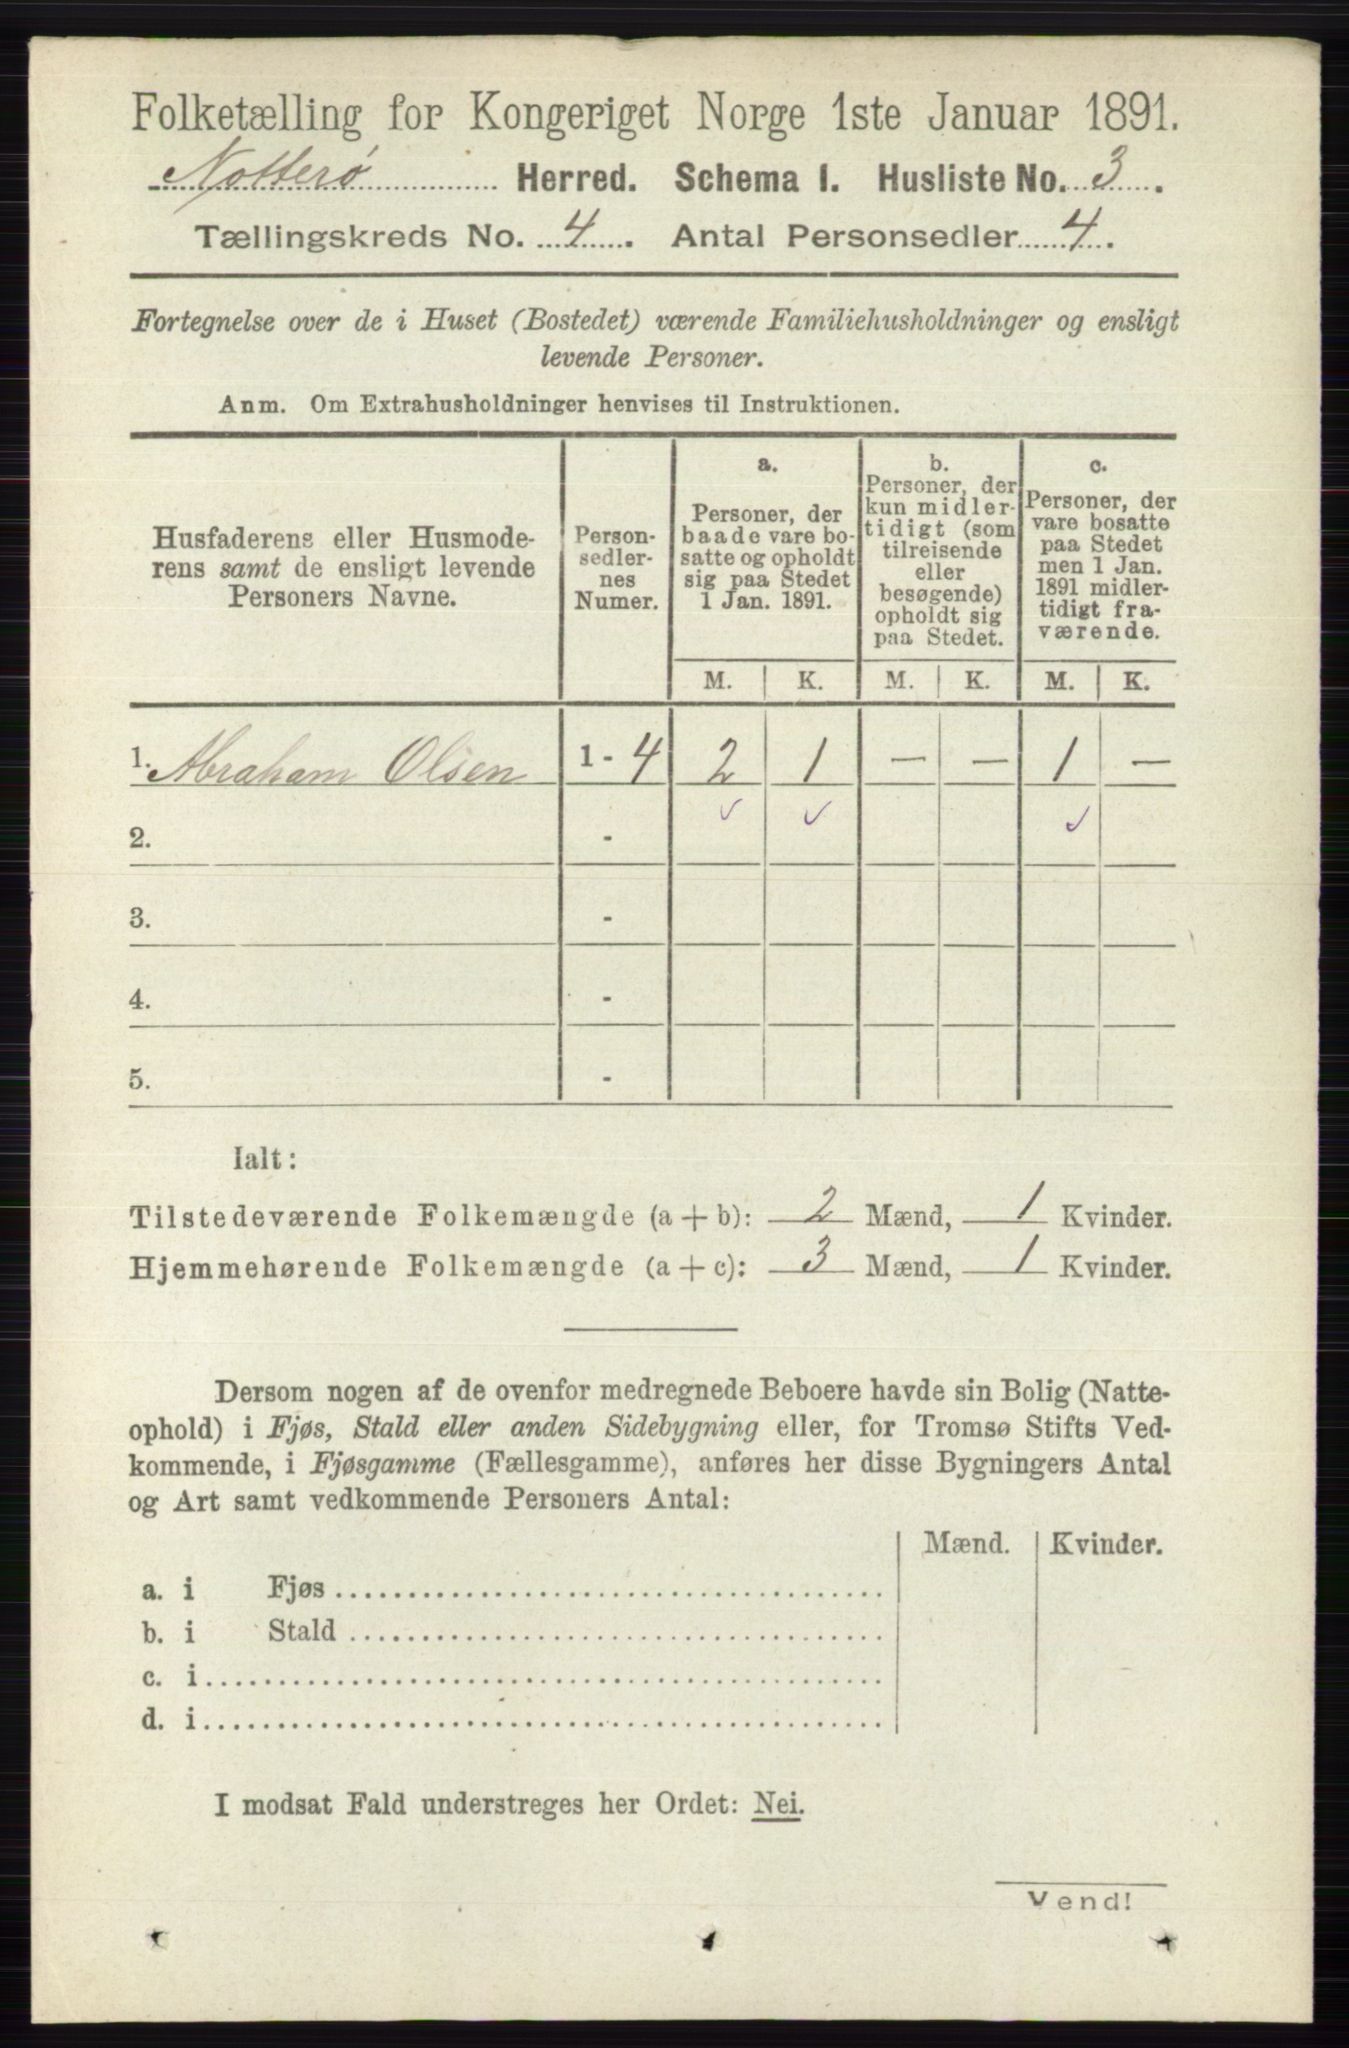 Folketælling for Kongeriget Norge 1ste Januar 1891.
Nøtterø Herred. Schema I. Husliste No. 3.
Tællingskreds No. 4. Antal Personsedler 4.
Fortegnelse over de i Huset (Bostedet) værende Familiehusholdninger og ensligt
levende Personer.
Anm. Om Extrahusholdninger henvises til Instruktionen.
Husfaderens eller Husmode-
rens samt de ensligt levende
Personers Navne.
Person-
sedler-
nes
Numer.
a.
Personer, der
baade vare bo-
satte og opholdt
sig paa Stedet
1 Jan. 1891.
b.
Personer, der
kun midler-
tidigt (som
tilreisende
eller
besøgende)
opholdt sig
paa Stedet.
c.
Personer, der
vare bosatte
paa Stedet
men 1 Jan.
1891 midler-
tidigt fra-
værende.
M. K. M. K. M. K.
1. Abraham Olsen 1 - 4 2 1 — — 1 —
2. - ✓ ✓ ✓
3. -
4. -
5. -
Ialt:
Tilstedeværende Folkemængde (a + b): 2 Mænd, 1 Kvinder.
Hjemmehørende Folkemængde (a + c): 3 Mænd, 1 Kvinder.
Dersom nogen af de ovenfor medregnede Beboere havde sin Bolig (Natte-
ophold) i Fjøs, Stald eller anden Sidebygning eller, for Tromsø Stifts Ved-
kommende, i Fjøsgamme (Fællesgamme), anføres her disse Bygningers Antal
og Art samt vedkommende Personers Antal:
Mænd. Kvinder.
a. i Fjøs
b. i Stald
c. i
d. i
I modsat Fald understreges her Ordet: Nei.
Vend!